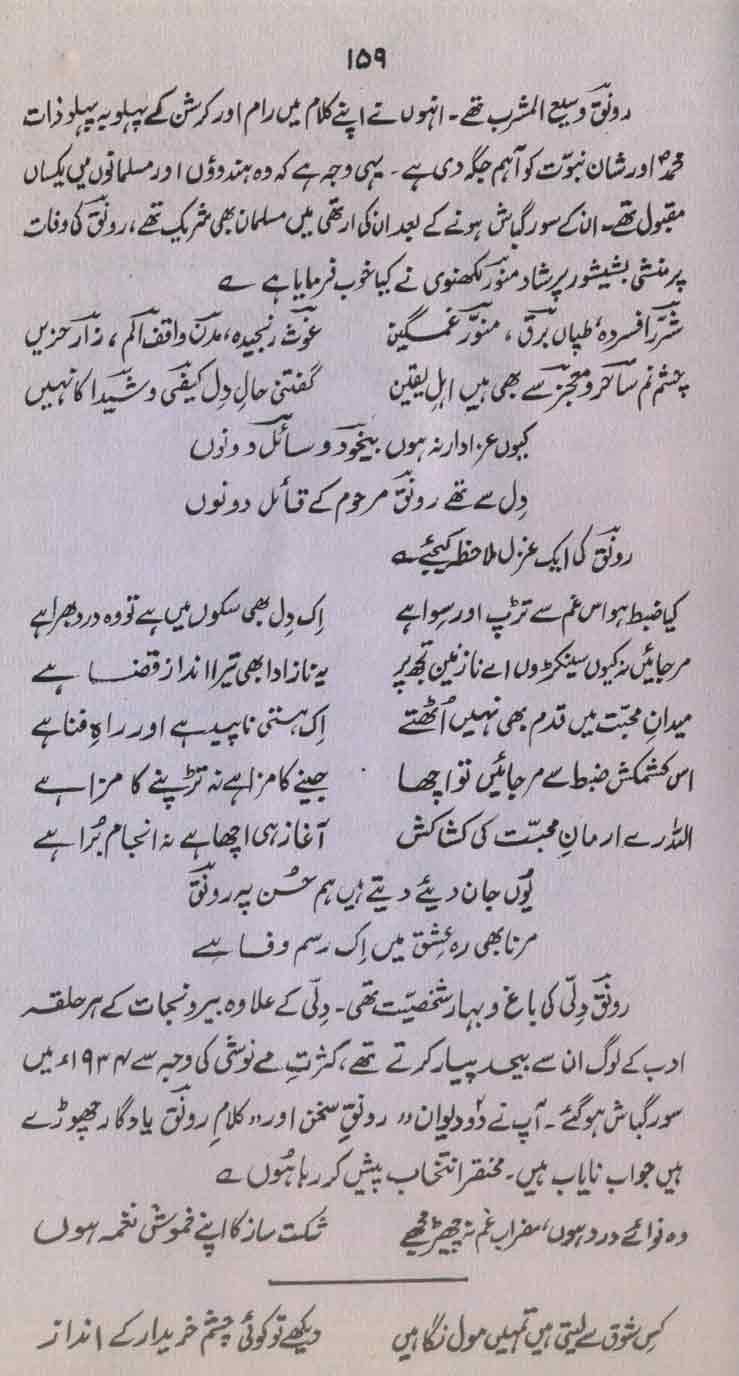 ۱۵۹
رونقؔ وسیع المشرب تھے۔ انہوں نے اپنے کلام میں رام اور کرشن کے پہلو بہ پہلو ذات
محمدؐ اور شان نبوّت کو اہم جگہ دی ہے۔ یہی وجہ ہے کہ وہ ہندوؤں اور مسلمانوں میں یکساں
مقبول تھے۔ ان کے سورگباش ہونے کے بعد ان کی ارتھی میں مسلمان بھی شریک تھے، رونقؔ کی وفات
پر منشی بشیشور پرشاد منورؔ لکھنوی نے کیا خوب فرمایا ہے ؎
شررؔ افسردہ، طپاں برقؔ، منورؔ غمگین غوثؔ رنجیدہ، مدنؔ واقف الم، زارؔ حزیں
چشم نم ساحرؔ و معجزؔ سے بھی ہیں اہلِ یقین گفتنی حالِ دِل کیفیؔ و شیداؔ کا نہیں
کیوں عزادار نہ ہوں بیخودؔ و سائلؔ دونوں
دِل سے تھے رونقؔ مرحوم کے قائل دونوں
رونقؔ کی ایک غزل ملاحظہ کیجئے ؎
کیا ضبط ہو اس غم سے تڑپ اور سِوا ہے اِک دِل بھی سکوں میں ہے تو وہ درد بھرا ہے
مرجائیں نہ کیوں سینکڑوں اے نازنین تجھ پر یہ ناز ادا بھی تیرا انداز قضا ہے
میدانِ محبّت میں قدم بھی نہیں اُٹھتے اِک ہستی ناپید ہے اور راہِ فنا ہے
اس کشمکش ضبط سے مرجائیں تو اچھا جینے کا مزا ہے نہ تڑپنے کا مزا ہے
اللہ رے ارمانِ محبّت کی کشاکش آغاز ہی اچھا ہے نہ انجام بُرا ہے
یُوں جان دیئے دیتے ہیں ہم حُسن پہ رونقؔ
مرنا بھی رہِ عشق میں اِک رسم وفا ہے
رونقؔ دِلّی کی باغ و بہار شخصیّت تھی۔ دِلّی کے علاوہ بیرونجات کے ہر حلقہ
ادب کے لوگ ان سے بیحد پیار کرتے تھے، کثرتِ مے نوشی کی وجہ سے ۱۹۳۴ء میں
سورگباش ہوگئے۔ آپ نے دو ۲ دیوان "رونقِ سخن اور "کلامِ رونق یادگار چھوڑے
ہیں جو اب نایاب ہیں۔ مختصر انتخاب پیش کر رہا ہُوں ؎
وہ نوائے درد ہوں، مضراب غم نہ چھیڑ مجھے شکست ساز کا اپنے خموش نغمہ ہوں
کِس شوق سے لیتی ہیں تمہیں مول نگاہیں دیکھے تو کوئی چشم خریدار کے انداز